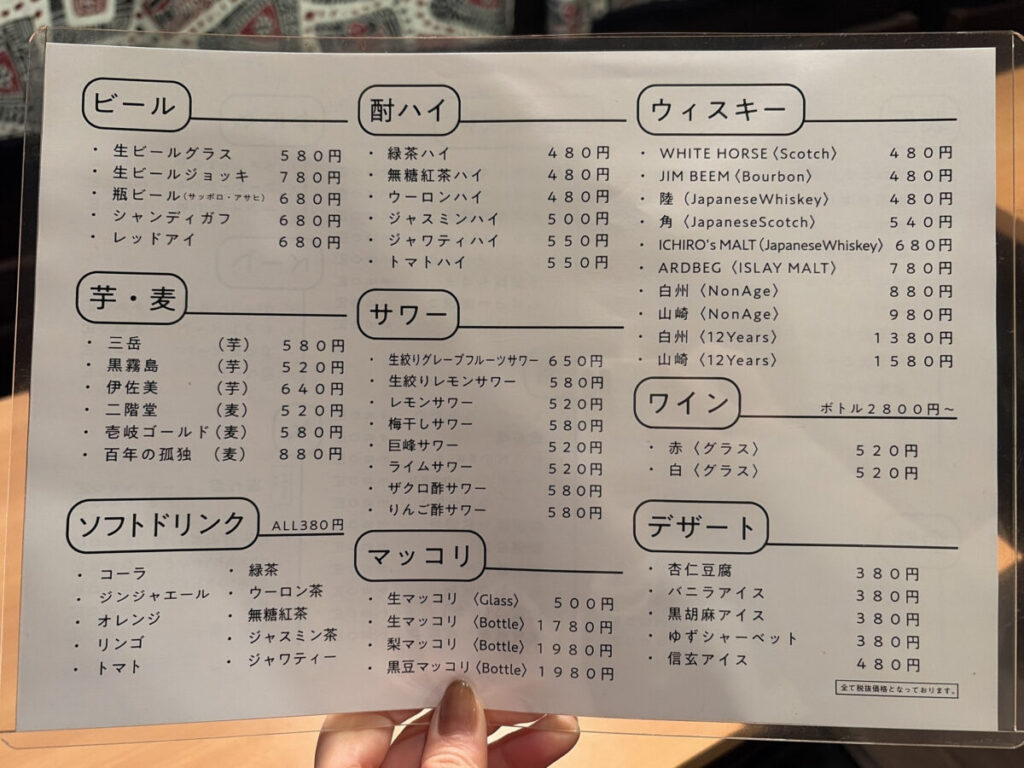 ビール
・ 生ビールグラス 580円
・ 生ビールジョッキ 780円
・ 瓶ビール(サッポロ・アサヒ) 680円
・ シャンディガフ 680円
・ レッドアイ 680円
芋・麦
・ 三岳 (芋) 580円
・ 黒霧島 (芋) 520円
・ 伊佐美 (芋) 640円
・ 二階堂 (麦) 520円
・ 壱岐ゴールド (麦) 580円
・ 百年の孤独 (麦) 880円
ソフトドリンク ALL380円
・ コーラ
・ ジンジャエール
・ オレンジ
・ リンゴ
・ トマト
・ 緑茶
・ ウーロン茶
・ 無糖紅茶
・ ジャスミン茶
・ ジャワティー
酎ハイ
・ 緑茶ハイ 480円
・ 無糖紅茶ハイ 480円
・ ウーロンハイ 480円
・ ジャスミンハイ 500円
・ ジャワティハイ 550円
・ トマトハイ 550円
サワー
・ 生絞りグレープフルーツサワー 650円
・ 生絞りレモンサワー 580円
・ レモンサワー 520円
・ 梅干しサワー 580円
・ 巨峰サワー 520円
・ ライムサワー 520円
・ ザクロ酢サワー 580円
・ りんご酢サワー 580円
マッコリ
・ 生マッコリ 〈Glass〉 500円
・ 生マッコリ 〈Bottle〉 1780円
・ 梨マッコリ 〈Bottle〉 1980円
・ 黒豆マッコリ〈Bottle〉 1980円
ウィスキー
・ WHITE HORSE〈Scotch〉 480円
・ JIM BEEM〈Bourbon〉 480円
・ 陸 〈JapaneseWhiskey〉 480円
・ 角 〈JapaneseScotch〉 540円
・ ICHIRO's MALT〈JapaneseWhiskey〉 680円
・ ARDBEG〈ISLAY MALT〉 780円
・ 白州〈NonAge〉 880円
・ 山崎〈NonAge〉 980円
・ 白州〈12Years〉 1380円
・ 山崎〈12Years〉 1580円
ワイン ボトル2800円~
・ 赤〈グラス〉 520円
・ 白〈グラス〉 520円
デザート
・ 杏仁豆腐 380円
・ バニラアイス 380円
・ 黒胡麻アイス 380円
・ ゆずシャーベット 380円
・ 信玄アイス 480円
全て税抜価格となっております。